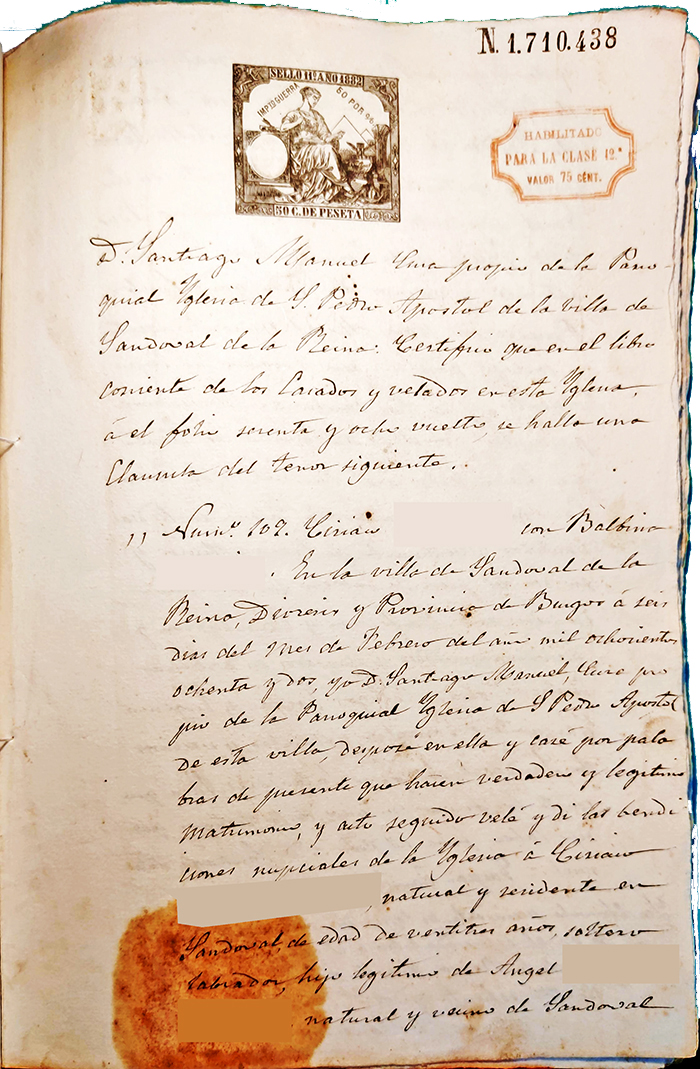 N. 1.710.438
SELLO 11º AÑO 1882
IMPTO GUERRA 50 POR %
50 C. DE PESETA
HABILITADO
PARA LA CLASE 12.ª
VALOR 75 CÉNT.
D. Santiago Manuel Cura propio de la Parro-
quial Yglesia de S. Pedro Apostol de la villa de
Sandoval de la Reina: Certifico que en el libro
corriente de los Casados y velados en esta Yglesia,
á el folio sesenta y ocho vuelto, se halla una
Clausula del tenor siguiente..
" Num.º 109. Ciriaco con Balbina
. En la villa de Sandoval de la
Reina, Diocesis y Provincia de Burgos á seis
dias del mes de Febrero del año mil ochocientos
ochenta y dos, yo D. Santiago Manuel, Cura pro
pio de la Parroquial Yglesia de S. Pedro Apostol
de esta villa, desposé en ella y casé por pala
bras de presente que hacen verdadero y legitimo
matrimonio, y acto seguido velé y di las bendi
ciones nupciales de la Yglesia á Ciriaco
, natural y residente en
Sandoval, de edad de ventitres años, soltero
labrador, hijo legitimo de Angel
natural y vecino de Sandoval